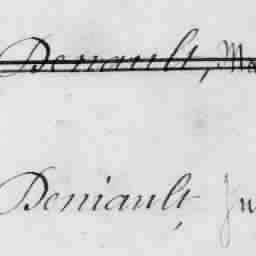 Deniault, Ma
Deniault Ju